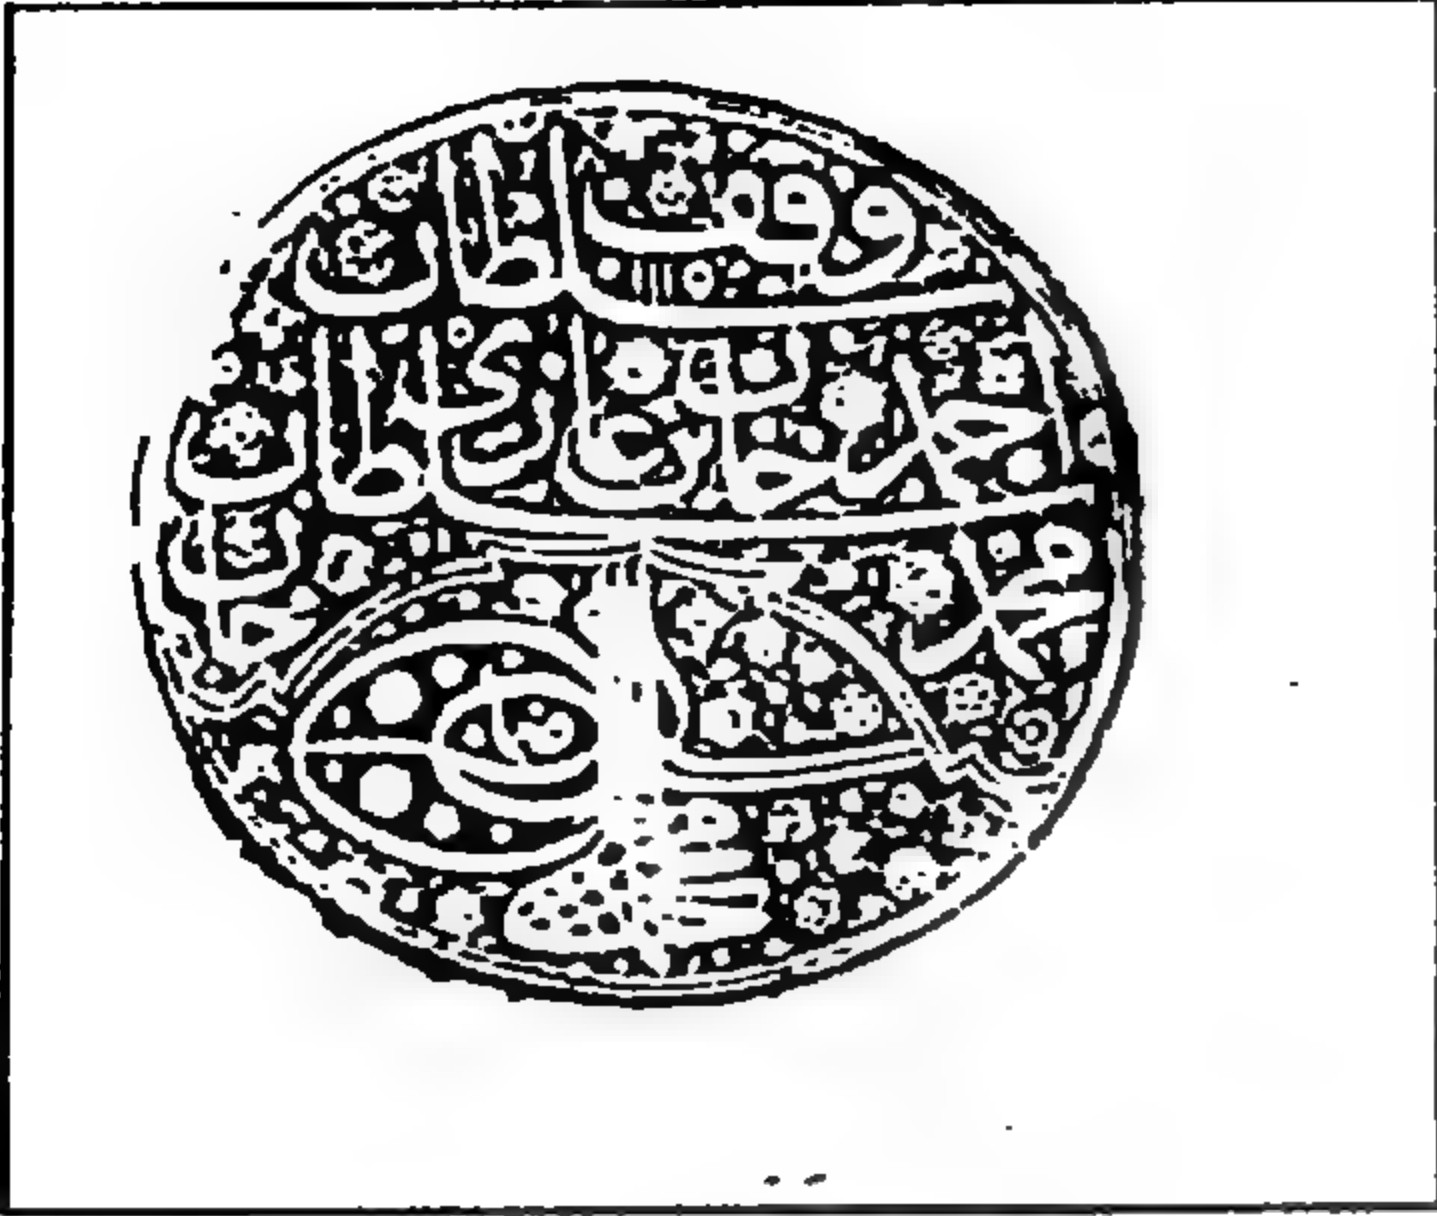 وقف سلطان
احمد خان غازى بن سلطان
محمد خان